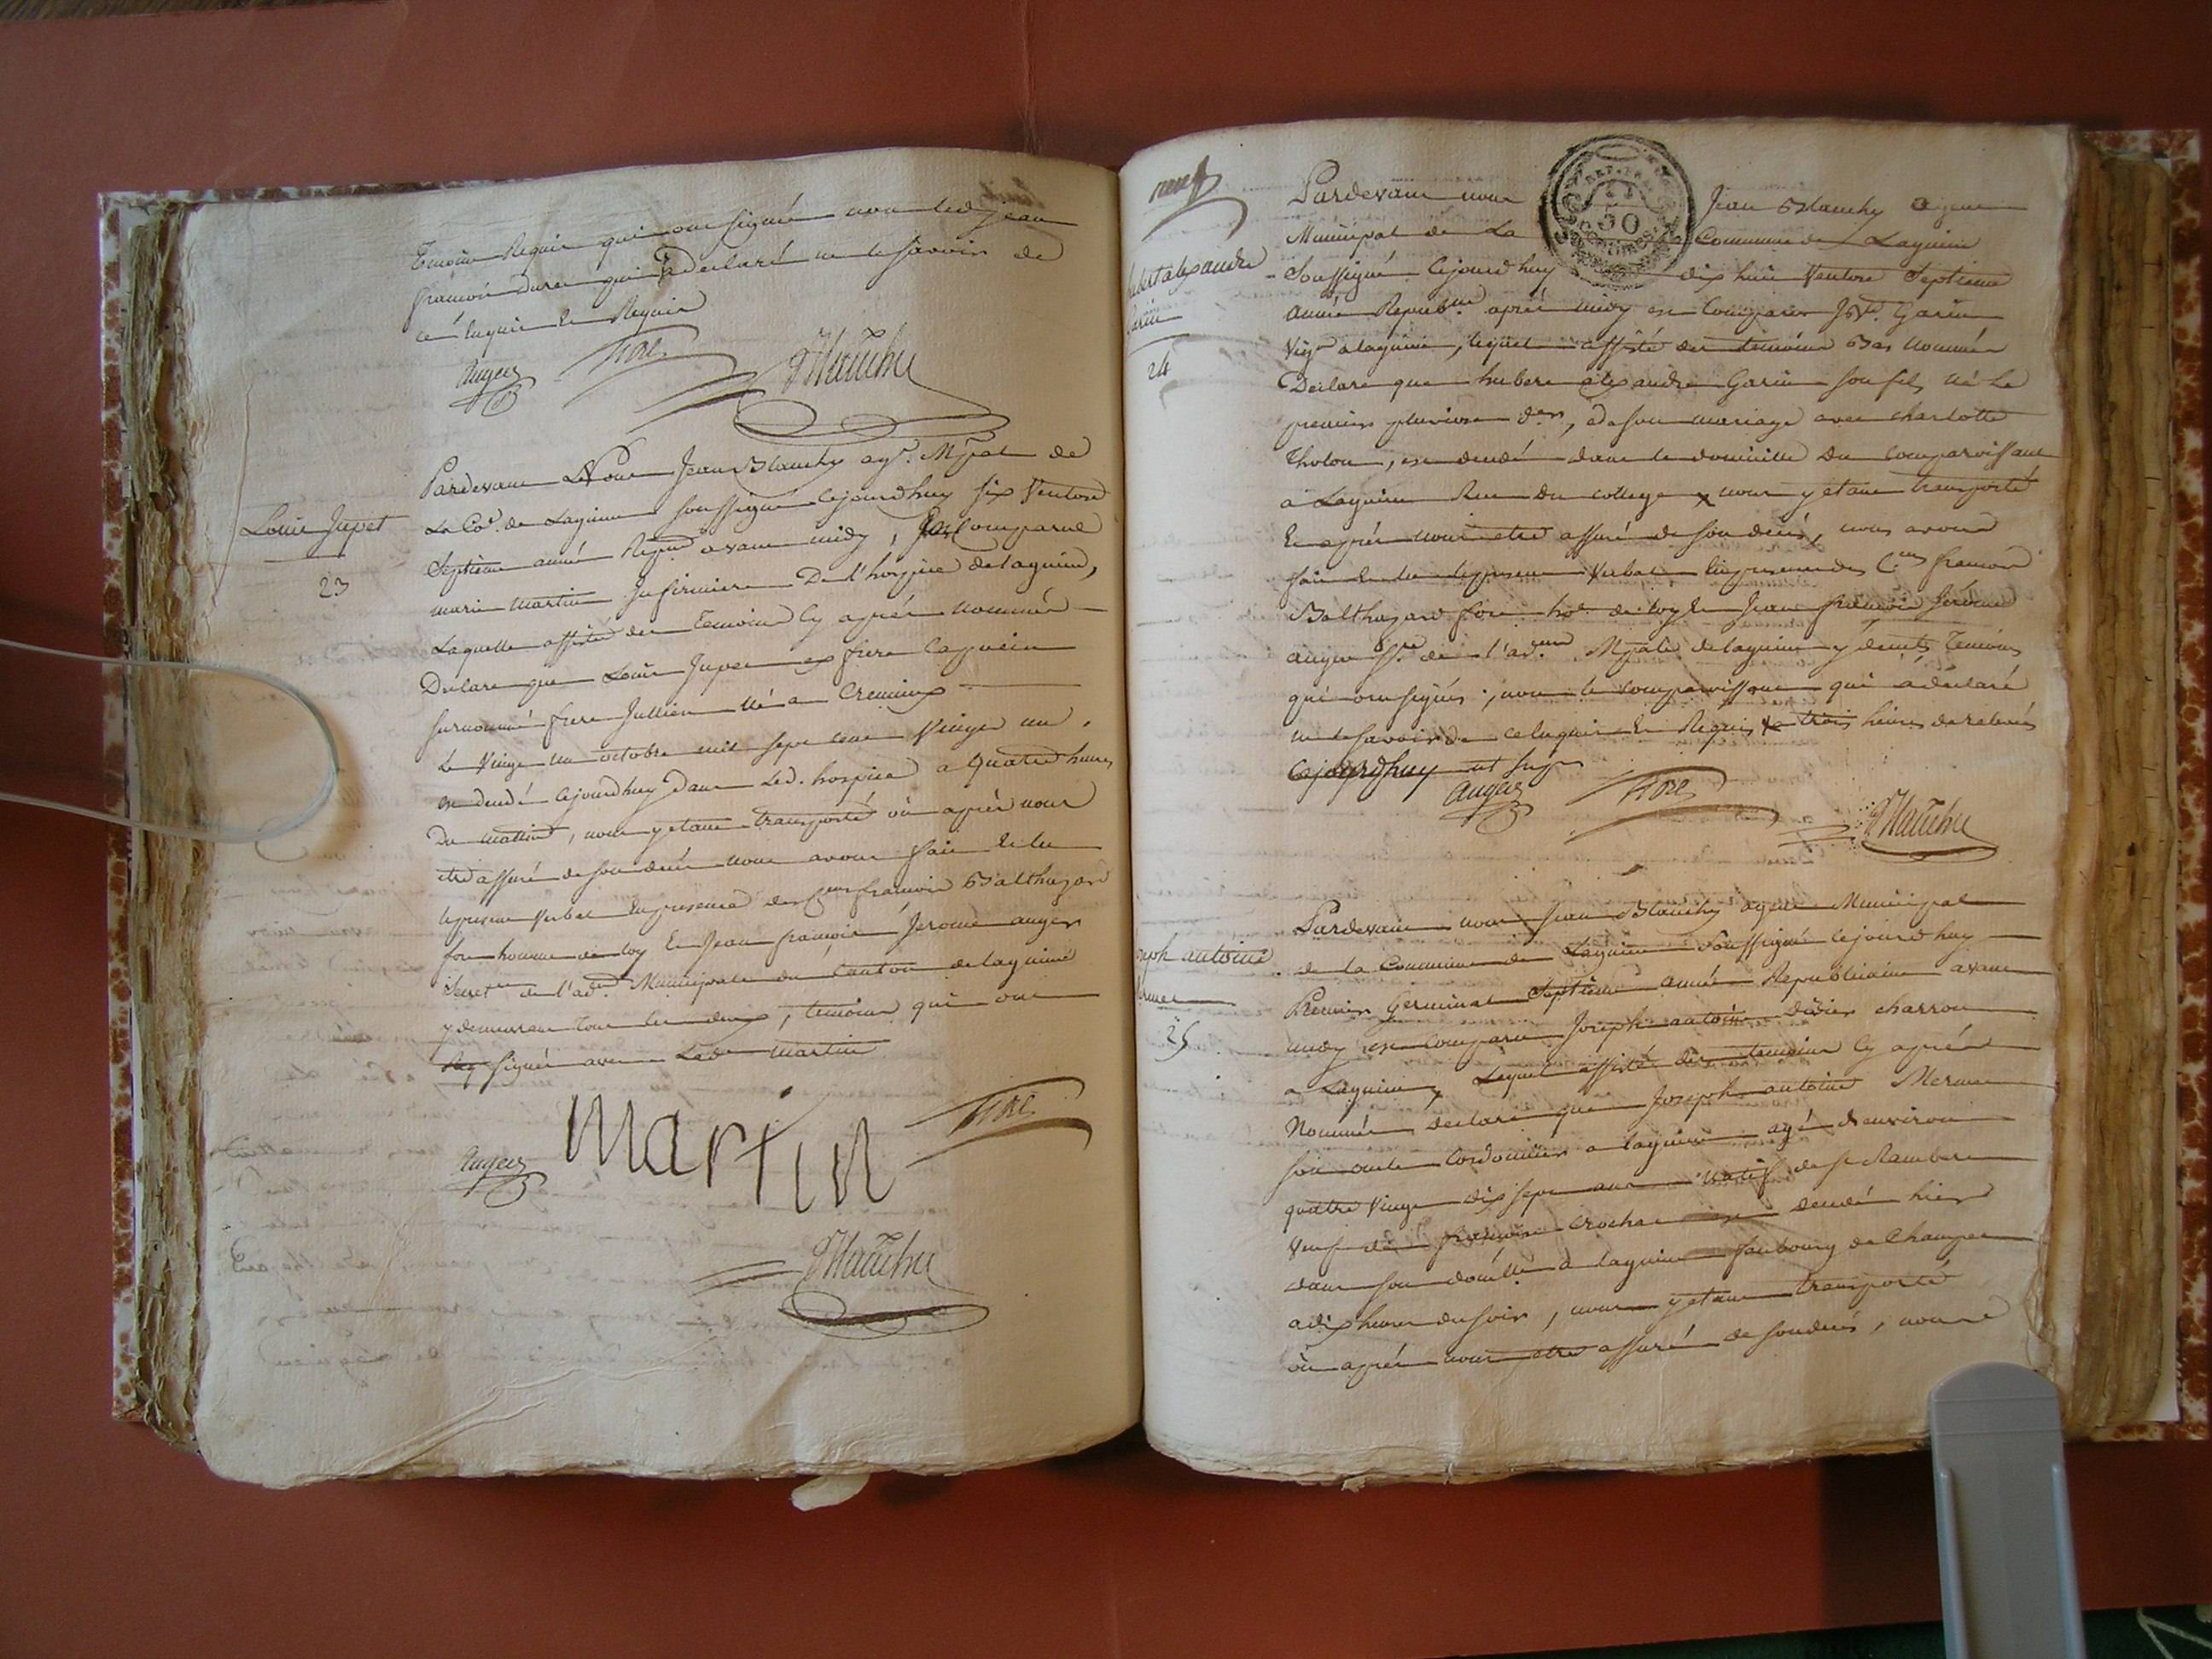 Temoins Requis qui ont signé non led. jean
françois duret qui a déclaré ne le savoir de
ce enquis et Requis
Auger fore JBlanchy
Louis Jupet
23
Pardevant Nous Jean Blanchy agt. Mpal de
La Coe. de Lagnieu soussigné cejourdhuy six Ventose
Septieme année Repne avant midy, Est Comparue
marie martin Infirmiere De l'hospice de lagnieu,
Laquelle assistée des Temoins Cy après nommés
Declare que Louis Jupet ex frere Capucin
surnommé frere Jullien né a Cremieux
Le Vingt un octobre mil sept cent Vingt un,
est decedé cejourdhuy Dans Led. hospice a Quatre heures
Du mattin, nous y etant transporté où après nous
etre assuré de son deces nous avons fait et lu
le present Verbal en presence des Cens françois Balthazard
fore homme de loy et Jean françois Jérome auger
Secretre de l'adon Municipale du Canton de lagnieu
y demeurant tous les deux, temoins qui ont
signé avec Lade martin
Auger martin fore
JBlanchy
neuf
hubert alexandre
Garin
24
Pardevant nous Jean Blanchy agent
REP. FRA.
50
CENTIMES
Municipal de La Commune de Lagnieu
Soussigné Cejourdhuy dix huit Ventose Septieme
année Republne après midy est Comparu Garin
Vign alagnieu, lequel assisté des temoins Bas nommés
Declare que hubert alexandre Garin son fils, né Le
premier pluviose der, de son mariage avec charlotte
Tholon, est decedé dans le domicille Du Comparoissant
a Lagnieu Rue Du college x nous y etant transporté
Et après nous etre assuré de son deces, nous avons
fait et lu le present Verbal En presence des Cens francois
Balthazard fore he. de loy et Jean francois Jérome
auger sre de l'adon Mpale de lagnieu y demts Temoins
qui ont signés, non le comparoissant qui a declaré
ne le savoir de ce enquis et Requis x a trois heures de relevée
Cejourdhuy ut supr
Auger fore JBlanchy
joseph antoine
Mermet
25
Pardevant nous Jean Blanchy agent Municipal
de la Commune de Lagnieu Soussigné cejourdhuy
Premier Germinal Septieme année Republicaine avant
midy est Comparu Joseph antoine Didier charron
a Lagnieu, Lequel assisté des temoins Cy après
Nommés Declare que Joseph antoine Mermet
son oncle Cordonnier a lagnieu agé d'environ
quatre Vingt dix sept ans natif de St Rambert
Veuf de françoise Crochet est decedé hier
dans son domlle a lagnieu faubourg de Champt
a dix heures du soir, nous y etant transporté
où après nous etre assuré de son deces, nous